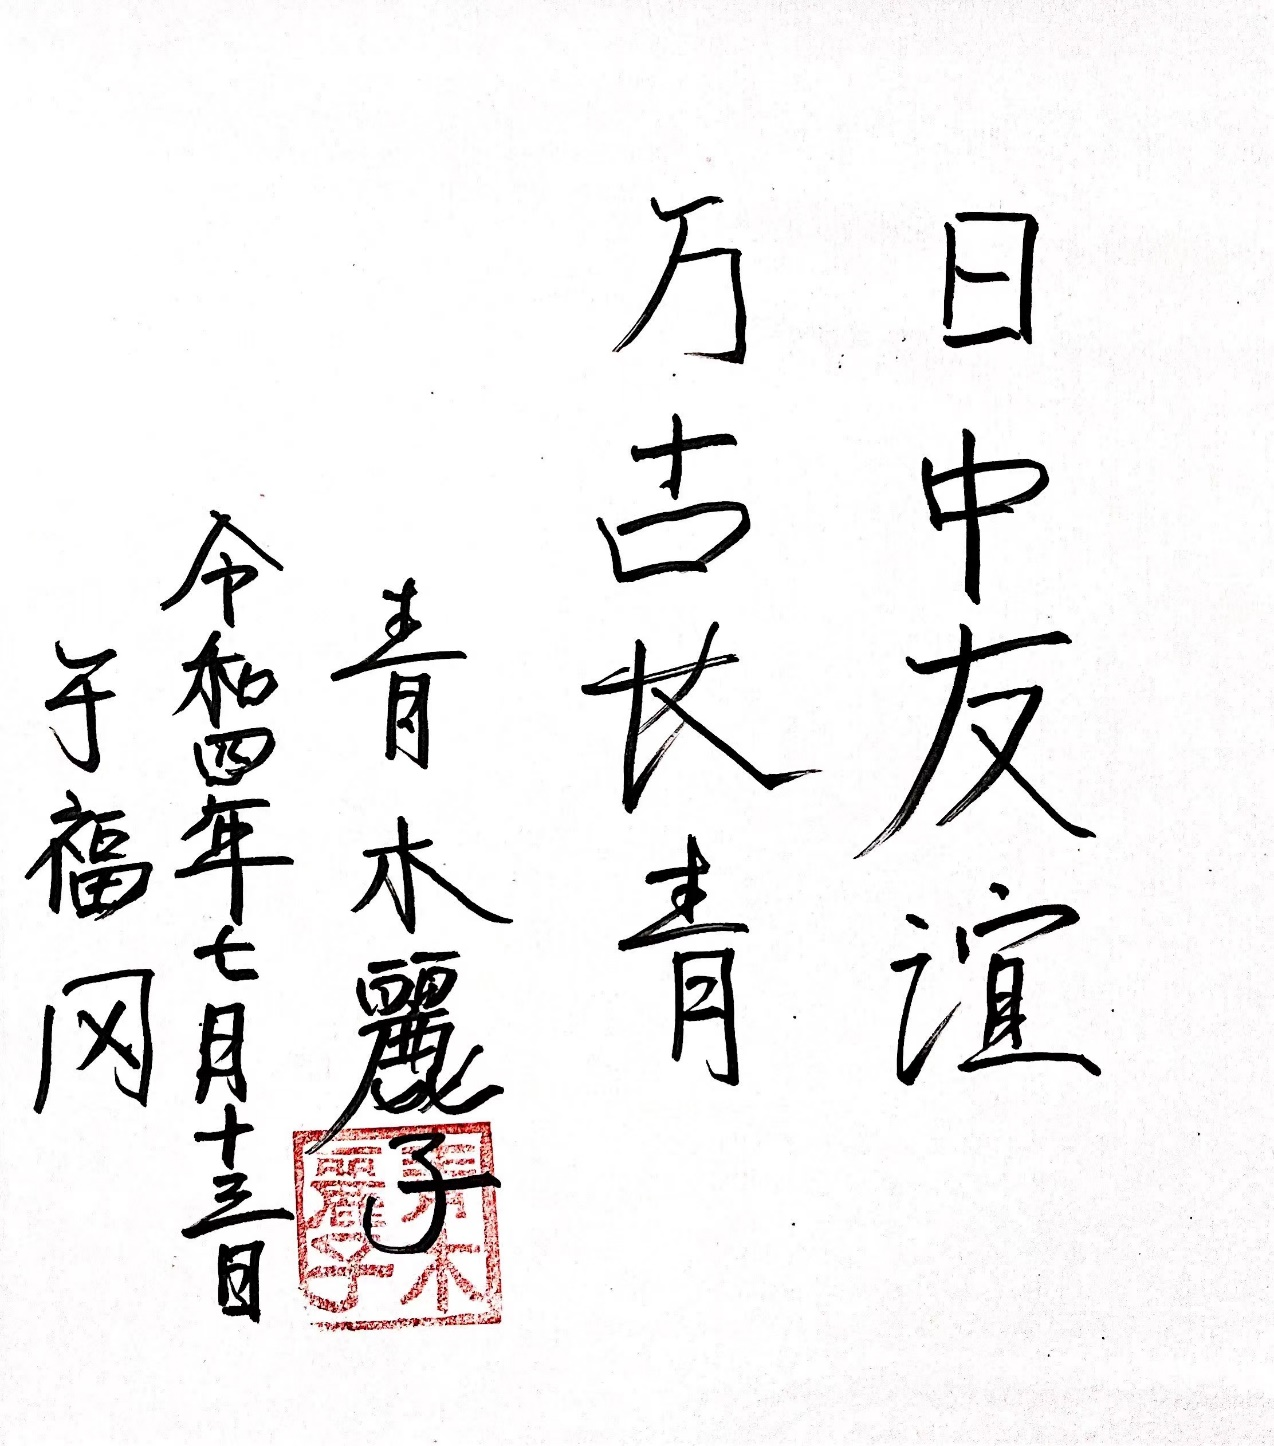 日中友谊
万古长青
青木麗子
令和四年七月十三日
于福冈
青木
麗子